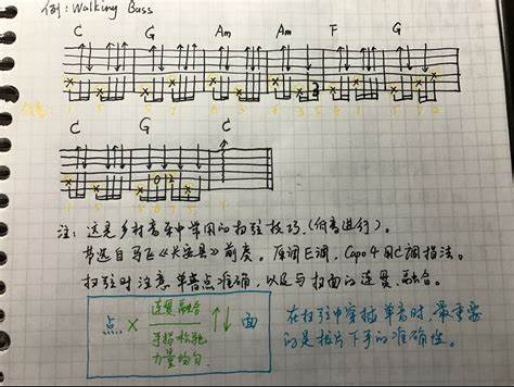 例：Walking Bass
C G Am Am F G
C G C
0 2
注：这是乡村音乐中常用的扫弦技巧.(低音进行).
节选自马飞《长安县》前奏. 原调E调, Capo 4 用C调指法.
扫弦时注意单音点准确, 以及与扫面的连贯、融合.
点 × 连贯, 融合 ↑↓ 面
手指松弛
力量均匀.
在扫弦中穿插单音时, 最重要
的是拨片下手的准确性.